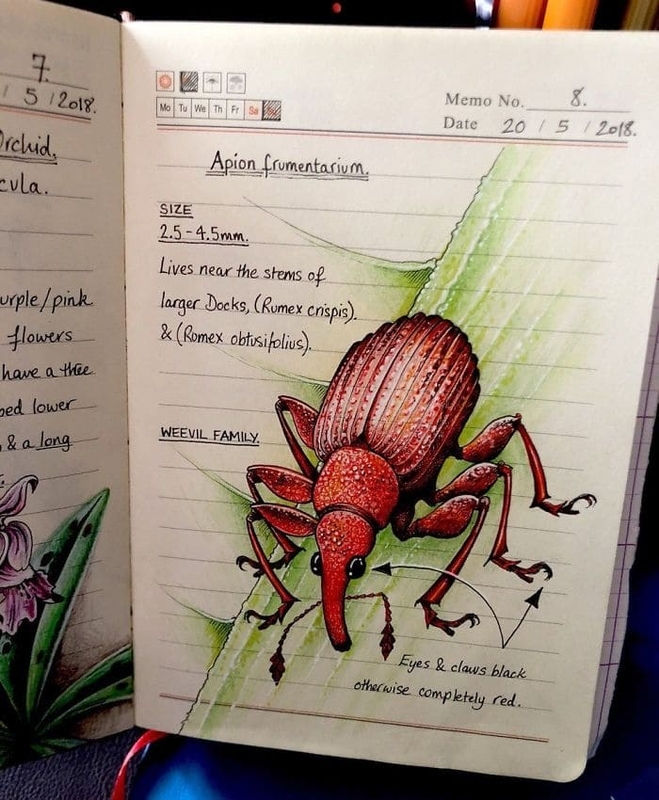 7.
/ 5 / 2018.
Orchid.
cula.
urple/pink
flowers
have a three
ped lower
& a long
Mo Tu We Th Fr Sa
Memo No. 8.
Date 20 / 5 / 2018.
Apion frumentarium.
SIZE
2.5-4.5mm.
Lives near the stems of
larger Docks, (Rumex crispis).
& (Romex obtusifolius).
WEEVIL FAMILY.
Eyes & claws black
otherwise completely red.